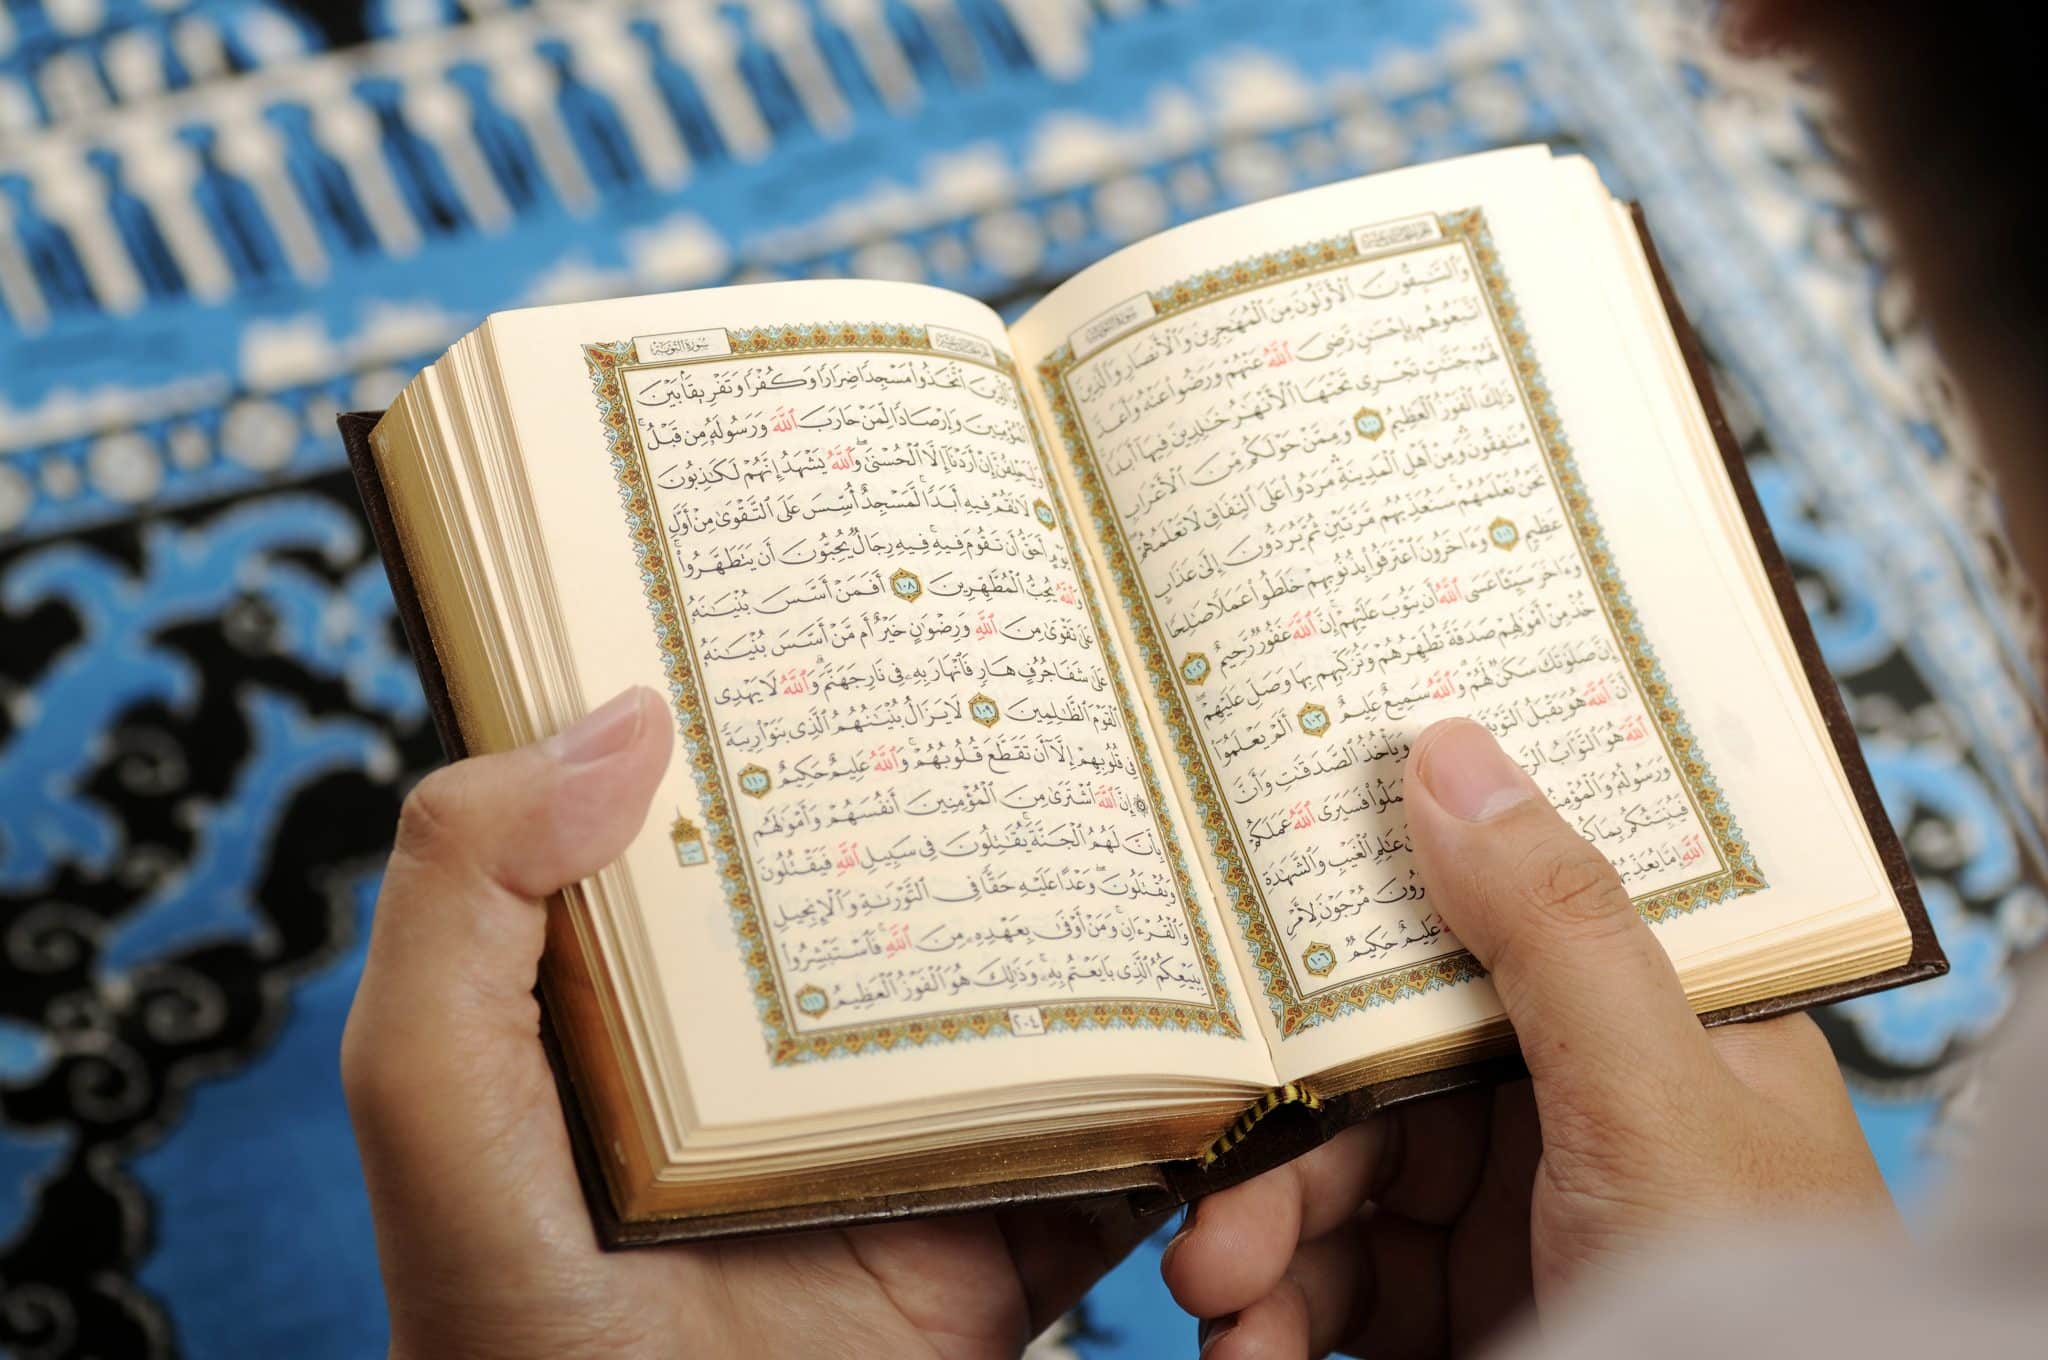 سُورَةُ التَّوْبَةِ
وَٱلسَّٰبِقُونَ ٱلْأَوَّلُونَ مِنَ ٱلْمُهَٰجِرِينَ وَٱلْأَنصَارِ وَٱلَّذِينَ
ٱتَّبَعُوهُم بِإِحْسَٰنٍ رَّضِىَ ٱللَّهُ عَنْهُمْ وَرَضُوا۟ عَنْهُ وَأَعَدَّ
لَهُمْ جَنَّٰتٍ تَجْرِى تَحْتَهَا ٱلْأَنْهَٰرُ خَٰلِدِينَ فِيهَآ أَبَدًا
ذَٰلِكَ ٱلْفَوْزُ ٱلْعَظِيمُ ١٠٠ وَمِمَّنْ حَوْلَكُم مِّنَ ٱلْأَعْرَابِ
مُنَٰفِقُونَ وَمِنْ أَهْلِ ٱلْمَدِينَةِ مَرَدُوا۟ عَلَى ٱلنِّفَاقِ لَا تَعْلَمُهُمْ
نَحْنُ نَعْلَمُهُمْ سَنُعَذِّبُهُم مَّرَّتَيْنِ ثُمَّ يُرَدُّونَ إِلَىٰ عَذَابٍ
عَظِيمٍ ١٠١ وَءَاخَرُونَ ٱعْتَرَفُوا۟ بِذُنُوبِهِمْ خَلَطُوا۟ عَمَلًا صَٰلِحًا
وَءَاخَرَ سَيِّئًا عَسَى ٱللَّهُ أَن يَتُوبَ عَلَيْهِمْ إِنَّ ٱللَّهَ غَفُورٌ رَّحِيمٌ ١٠٢
خُذْ مِنْ أَمْوَٰلِهِمْ صَدَقَةً تُطَهِّرُهُمْ وَتُزَكِّيهِم بِهَا وَصَلِّ عَلَيْهِمْ
إِنَّ صَلَوٰتَكَ سَكَنٌ لَّهُمْ وَٱللَّهُ سَمِيعٌ عَلِيمٌ ١٠٣ أَلَمْ يَعْلَمُوٓا۟
أَنَّ ٱللَّهَ هُوَ يَقْبَلُ ٱلتَّوْبَةَ وَيَأْخُذُ ٱلصَّدَقَٰتِ وَأَنَّ
ٱللَّهَ هُوَ ٱلتَّوَّابُ فَسَيَرَى ٱللَّهُ عَمَلَكُمْ
وَرَسُولُهُۥ عَٰلِمِ ٱلْغَيْبِ وَٱلشَّهَٰدَةِ
فَيُنَبِّئُكُم بِمَا مُرْجَوْنَ لِأَمْرِ
ٱللَّهِ إِمَّا عَلِيمٌ حَكِيمٌ ١٠٦
سُورَةُ التَّوْبَةِ
وَٱلَّذِينَ ٱتَّخَذُوا۟ مَسْجِدًا ضِرَارًا وَكُفْرًا وَتَفْرِيقًۢا بَيْنَ
ٱلْمُؤْمِنِينَ وَإِرْصَادًا لِّمَنْ حَارَبَ ٱللَّهَ وَرَسُولَهُۥ مِن قَبْلُ
وَلَيَحْلِفُنَّ إِنْ أَرَدْنَآ إِلَّا ٱلْحُسْنَىٰ وَٱللَّهُ يَشْهَدُ إِنَّهُمْ لَكَٰذِبُونَ
١٠٧ لَا تَقُمْ فِيهِ أَبَدًا لَّمَسْجِدٌ أُسِّسَ عَلَى ٱلتَّقْوَىٰ مِنْ أَوَّلِ
يَوْمٍ أَحَقُّ أَن تَقُومَ فِيهِ فِيهِ رِجَالٌ يُحِبُّونَ أَن يَتَطَهَّرُوا۟
وَٱللَّهُ يُحِبُّ ٱلْمُطَّهِّرِينَ ١٠٨ أَفَمَنْ أَسَّسَ بُنْيَٰنَهُۥ
عَلَىٰ تَقْوَىٰ مِنَ ٱللَّهِ وَرِضْوَٰنٍ خَيْرٌ أَم مَّنْ أَسَّسَ بُنْيَٰنَهُۥ
عَلَىٰ شَفَا جُرُفٍ هَارٍ فَٱنْهَارَ بِهِۦ فِى نَارِ جَهَنَّمَ وَٱللَّهُ لَا يَهْدِى
ٱلْقَوْمَ ٱلظَّٰلِمِينَ ١٠٩ لَا يَزَالُ بُنْيَٰنُهُمُ ٱلَّذِى بَنَوْا۟ رِيبَةً
فِى قُلُوبِهِمْ إِلَّآ أَن تَقَطَّعَ قُلُوبُهُمْ وَٱللَّهُ عَلِيمٌ حَكِيمٌ ١١٠
۞ إِنَّ ٱللَّهَ ٱشْتَرَىٰ مِنَ ٱلْمُؤْمِنِينَ أَنفُسَهُمْ وَأَمْوَٰلَهُم
بِأَنَّ لَهُمُ ٱلْجَنَّةَ يُقَٰتِلُونَ فِى سَبِيلِ ٱللَّهِ فَيَقْتُلُونَ
وَيُقْتَلُونَ وَعْدًا عَلَيْهِ حَقًّا فِى ٱلتَّوْرَىٰةِ وَٱلْإِنجِيلِ
وَٱلْقُرْءَانِ وَمَنْ أَوْفَىٰ بِعَهْدِهِۦ مِنَ ٱللَّهِ فَٱسْتَبْشِرُوا۟
بِبَيْعِكُمُ ٱلَّذِى بَايَعْتُم بِهِۦ وَذَٰلِكَ هُوَ ٱلْفَوْزُ ٱلْعَظِيمُ ١١١
٢٠٤